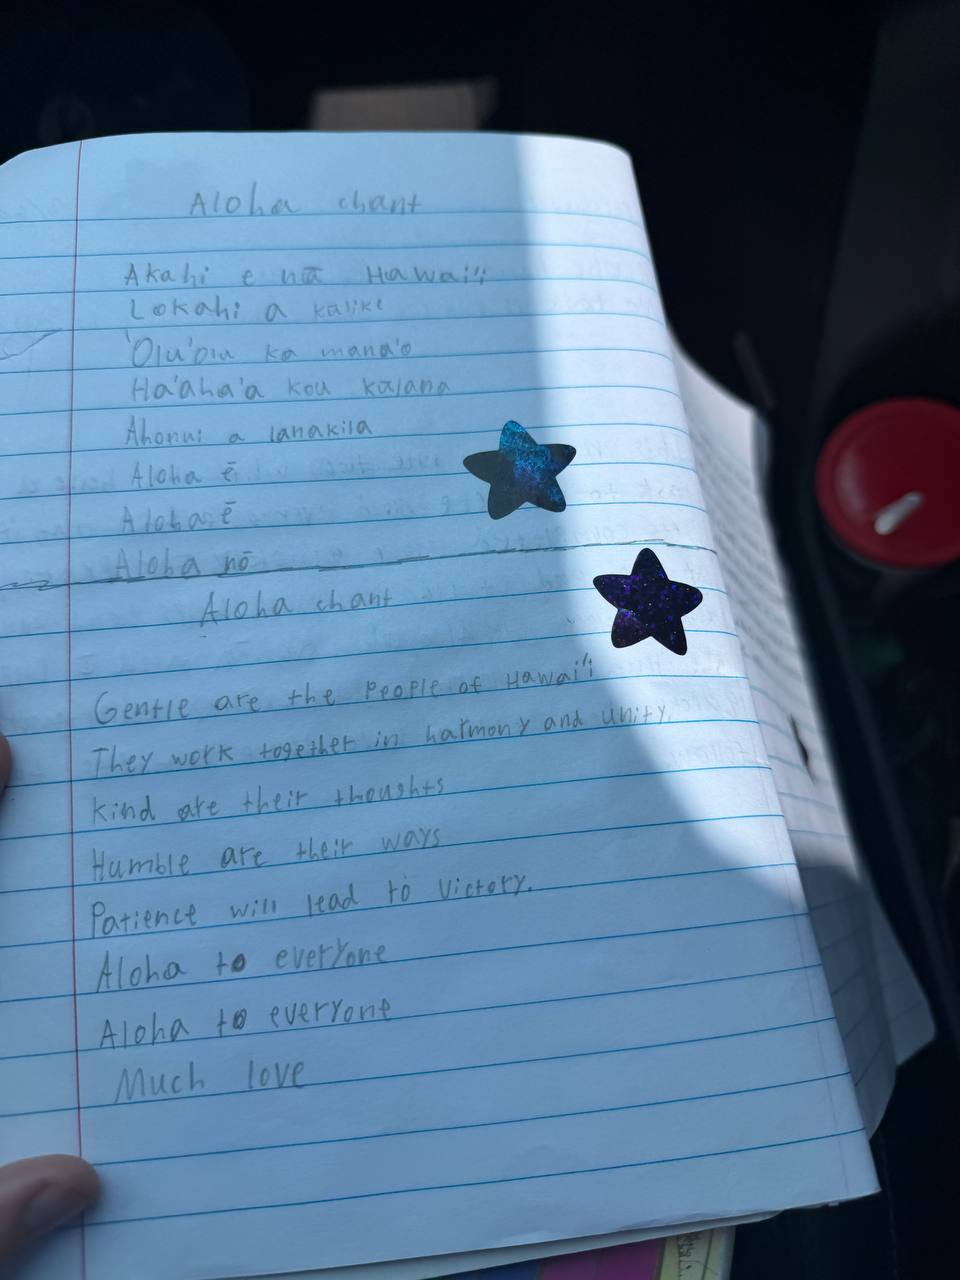 Aloha chant
Akahi e nā Hawai'i
Lokahi a kalike
'Olu'olu ka mana'o
Ha'aha'a kou kalana
Ahonui a lanakila
Aloha ē
Aloha ē
Aloha nō
Aloha chant
Gentle are the People of Hawai'i
They work together in harmony and unity.
Kind are their thoughts
Humble are their ways
Patience will lead to victory.
Aloha to everyone
Aloha to everyone
Much love